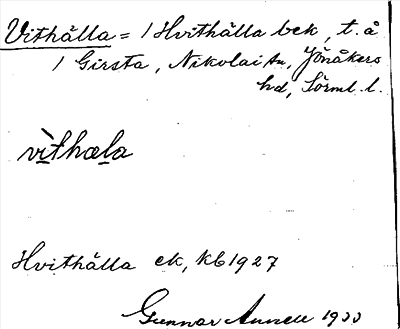 Vithälla = 1 Hvithälla bek, t. å
1 Girsta, Nikolai sn, Jönåkers
hd, Sörml. l.
vìthæla
Hvithälla ek, kb 1927
Gunnar 1933